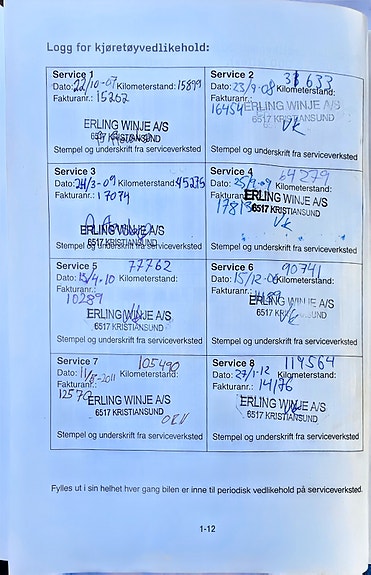 Logg for kjøretøyvedlikehold:
Service 1
Dato: 22/10-07 Kilometerstand: 15899
Fakturanr.: 15262
ERLING WINJE A/S
6517 KRISTIANSUND
Stempel og underskrift fra serviceverksted
Service 2
Dato: 23/9-08 Kilometerstand: 31633
Fakturanr.: 16454
ERLING WINJE A/S
6517 KRISTIANSUND
Stempel og underskrift fra serviceverksted
Service 3
Dato: 24/3-09 Kilometerstand: 45235
Fakturanr.: 17074
ERLING WINJE A/S
6517 KRISTIANSUND
Stempel og underskrift fra serviceverksted
Service 4
Dato: 25/9-09 Kilometerstand: 64279
Fakturanr.:
ERLING WINJE A/S
6517 KRISTIANSUND
Stempel og underskrift fra serviceverksted
Service 5
Dato: 15/4-10 Kilometerstand: 77762
Fakturanr.: 10289
ERLING WINJE A/S
6517 KRISTIANSUND
Stempel og underskrift fra serviceverksted
Service 6
Dato: 15/12- Kilometerstand: 90741
Fakturanr.:
ERLING WINJE A/S
6517 KRISTIANSUND
Stempel og underskrift fra serviceverksted
Service 7
Dato: 11/5-2011 Kilometerstand: 105490
Fakturanr.: 12570
ERLING WINJE A/S
6517 KRISTIANSUND
Stempel og underskrift fra serviceverksted
Service 8
Dato: 27/1-12 Kilometerstand: 119564
Fakturanr.: 14176
ERLING WINJE A/S
6517 KRISTIANSUND
Stempel og underskrift fra serviceverksted
Fylles ut i sin helhet hver gang bilen er inne til periodisk vedlikehold på serviceverksted.
1-12